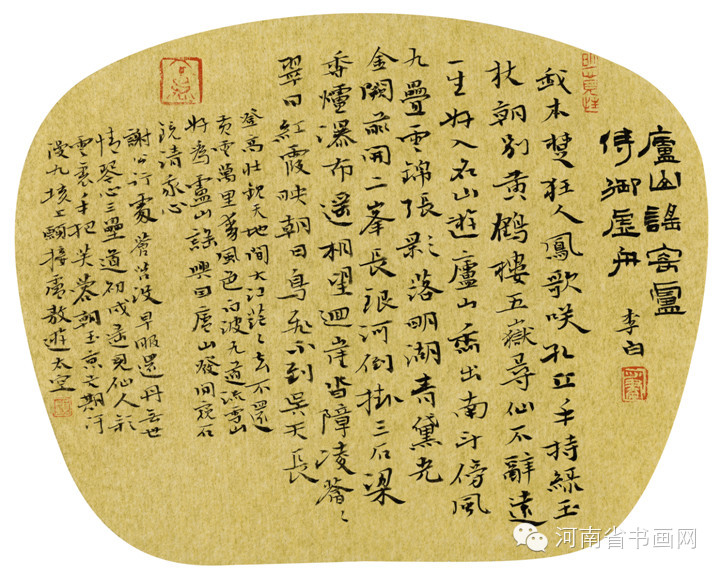 廬山謠寄廬
侍御虛舟
李白
我本楚狂人鳳歌咲孔丘手持綠玉
杖朝別黃鶴樓五嶽尋仙不辭遠
一生好入名山遊廬山秀出南斗傍風
九疊雲錦張影落明湖青黛光
金闕前開二峯長銀河倒掛三石梁
香爐瀑布遙相望迴崖沓障凌蒼々
翠日紅霞映朝日鳥飛不到吳天長
登高壯觀天地間大江茫々去不還
黃雲萬里動風色白波九道流雪山
好為廬山謠興因廬山發閒窺石
鏡清我心
謝公行處蒼苔沒早服還丹無世
情琴心三疊道初成遙見仙人彩
雲裏手把芙蓉朝玉京先期汗
漫九垓上願接盧敖遊太空
河南省书画网